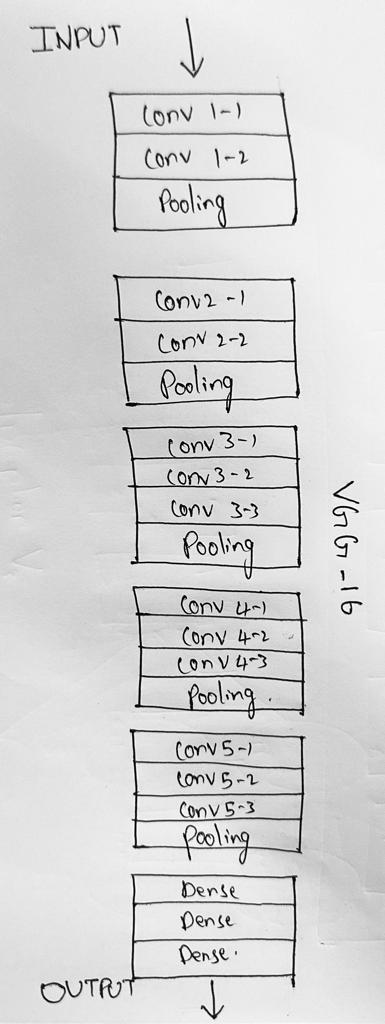 INPUT
Conv 1-1
Conv 1-2
Pooling
Conv2-1
Conv 2-2
Pooling
Conv 3-1
Conv 3-2
Conv 3-3
Pooling
VGG-16
Conv 4-1
Conv 4-2
Conv 4-3
Pooling.
Conv 5-1
Conv 5-2
Conv 5-3
Pooling
Dense
Dense
Dense.
OUTPUT